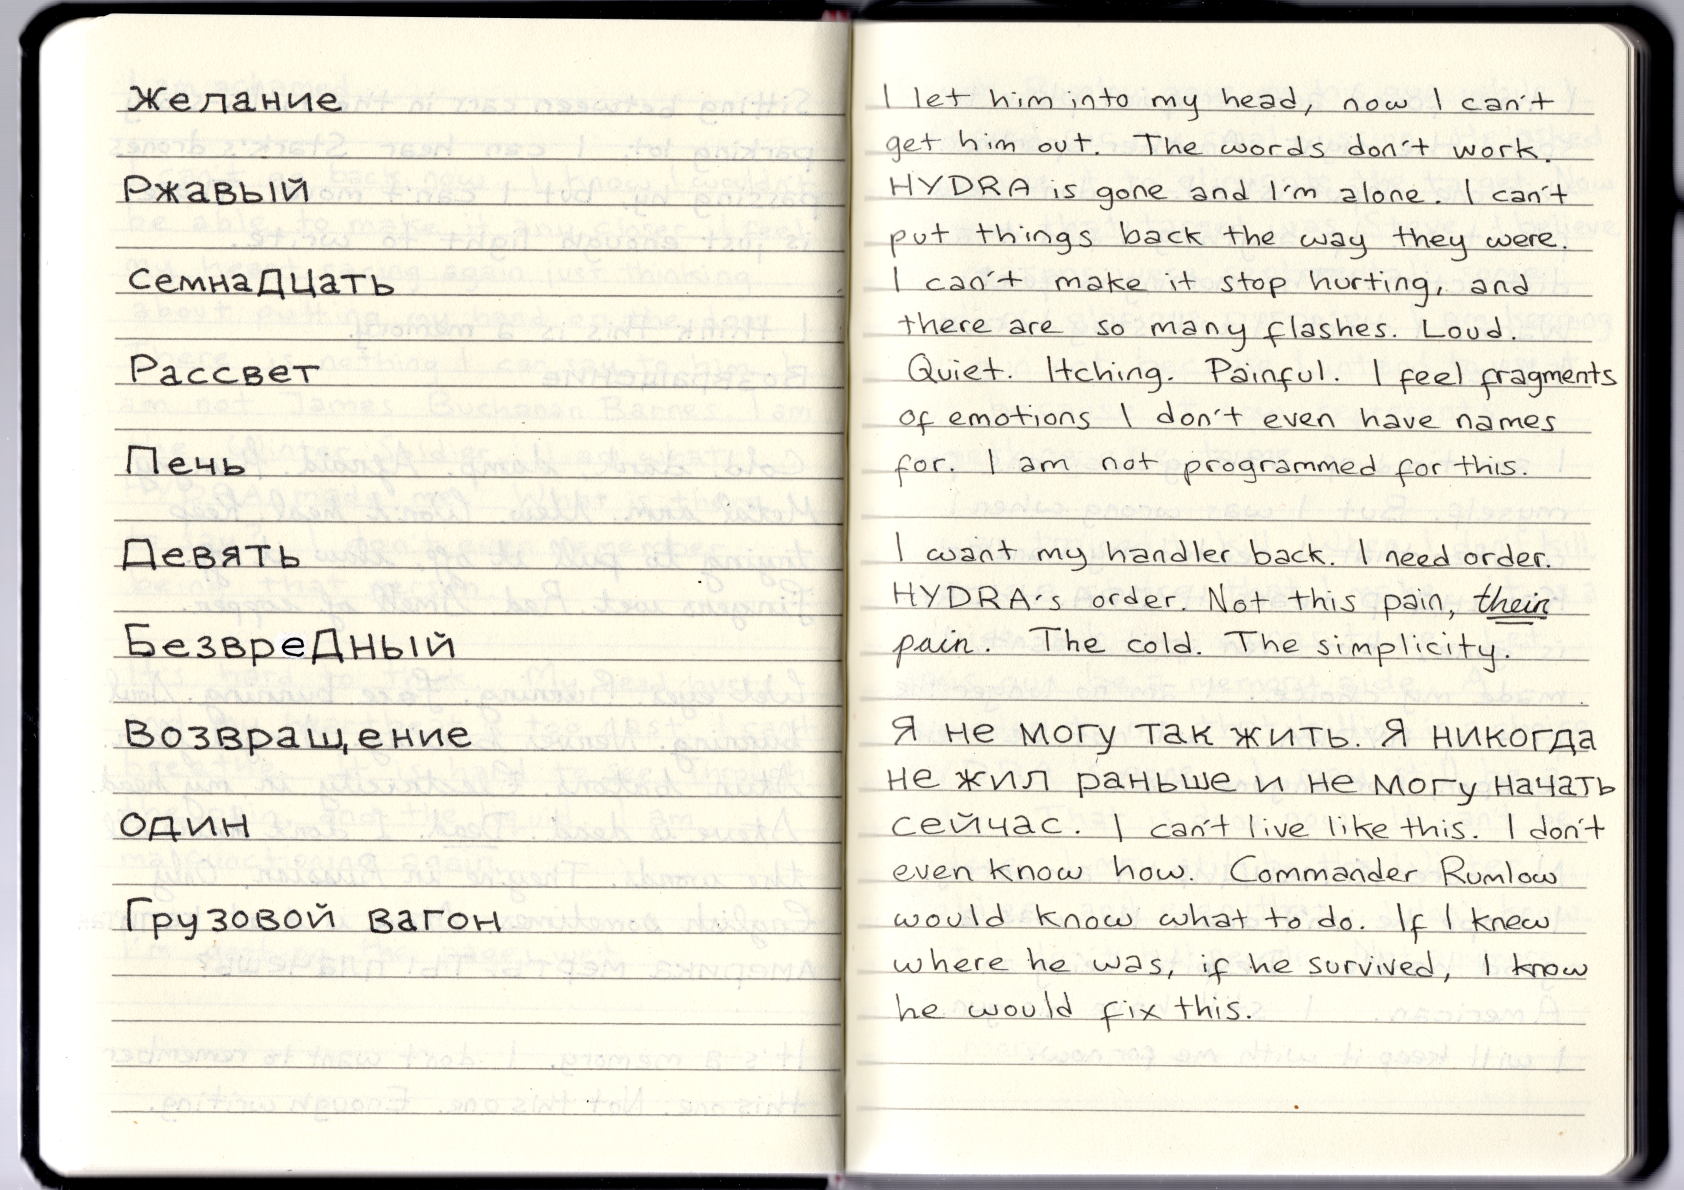 Желание
Ржавый
СемнаДЦать
Рассвет
Печь
Девять
БезвреДный
Возвращение
один
Грузовой вагон
I let him into my head, now I can't
get him out. The words don't work.
HYDRA is gone and I'm alone. I can't
put things back the way they were.
I can't make it stop hurting, and
there are so many flashes. Loud.
Quiet. Itching. Painful. I feel fragments
of emotions I don't even have names
for. I am not programmed for this.
I want my handler back. I need order.
HYDRA's order. Not this pain, their
pain. The cold. The simplicity.
Я не могу так жить. Я никогда
не жил раньше и не могу начать
сейчас. I can't live like this. I don't
even know how. Commander Rumlow
would know what to do. If I knew
where he was, if he survived, I know
he would fix this.